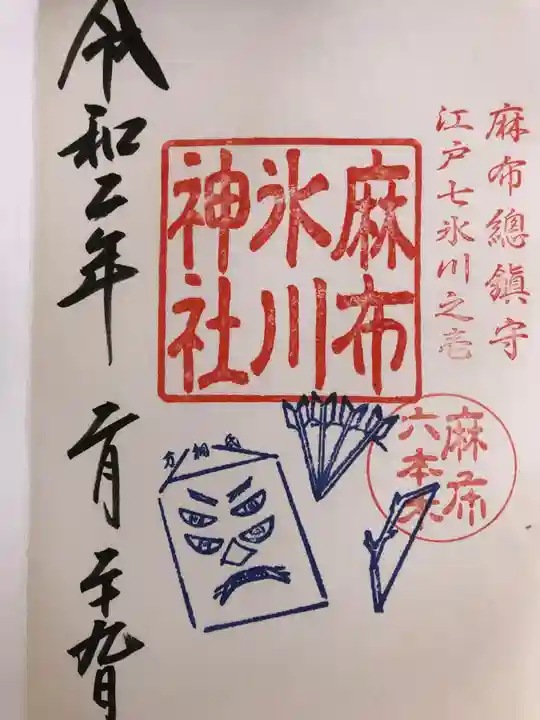 麻布總鎮守
江戸七氷川之壱
麻布
氷川
神社
麻布
六本木
方相氏
令和二年二月二十九日